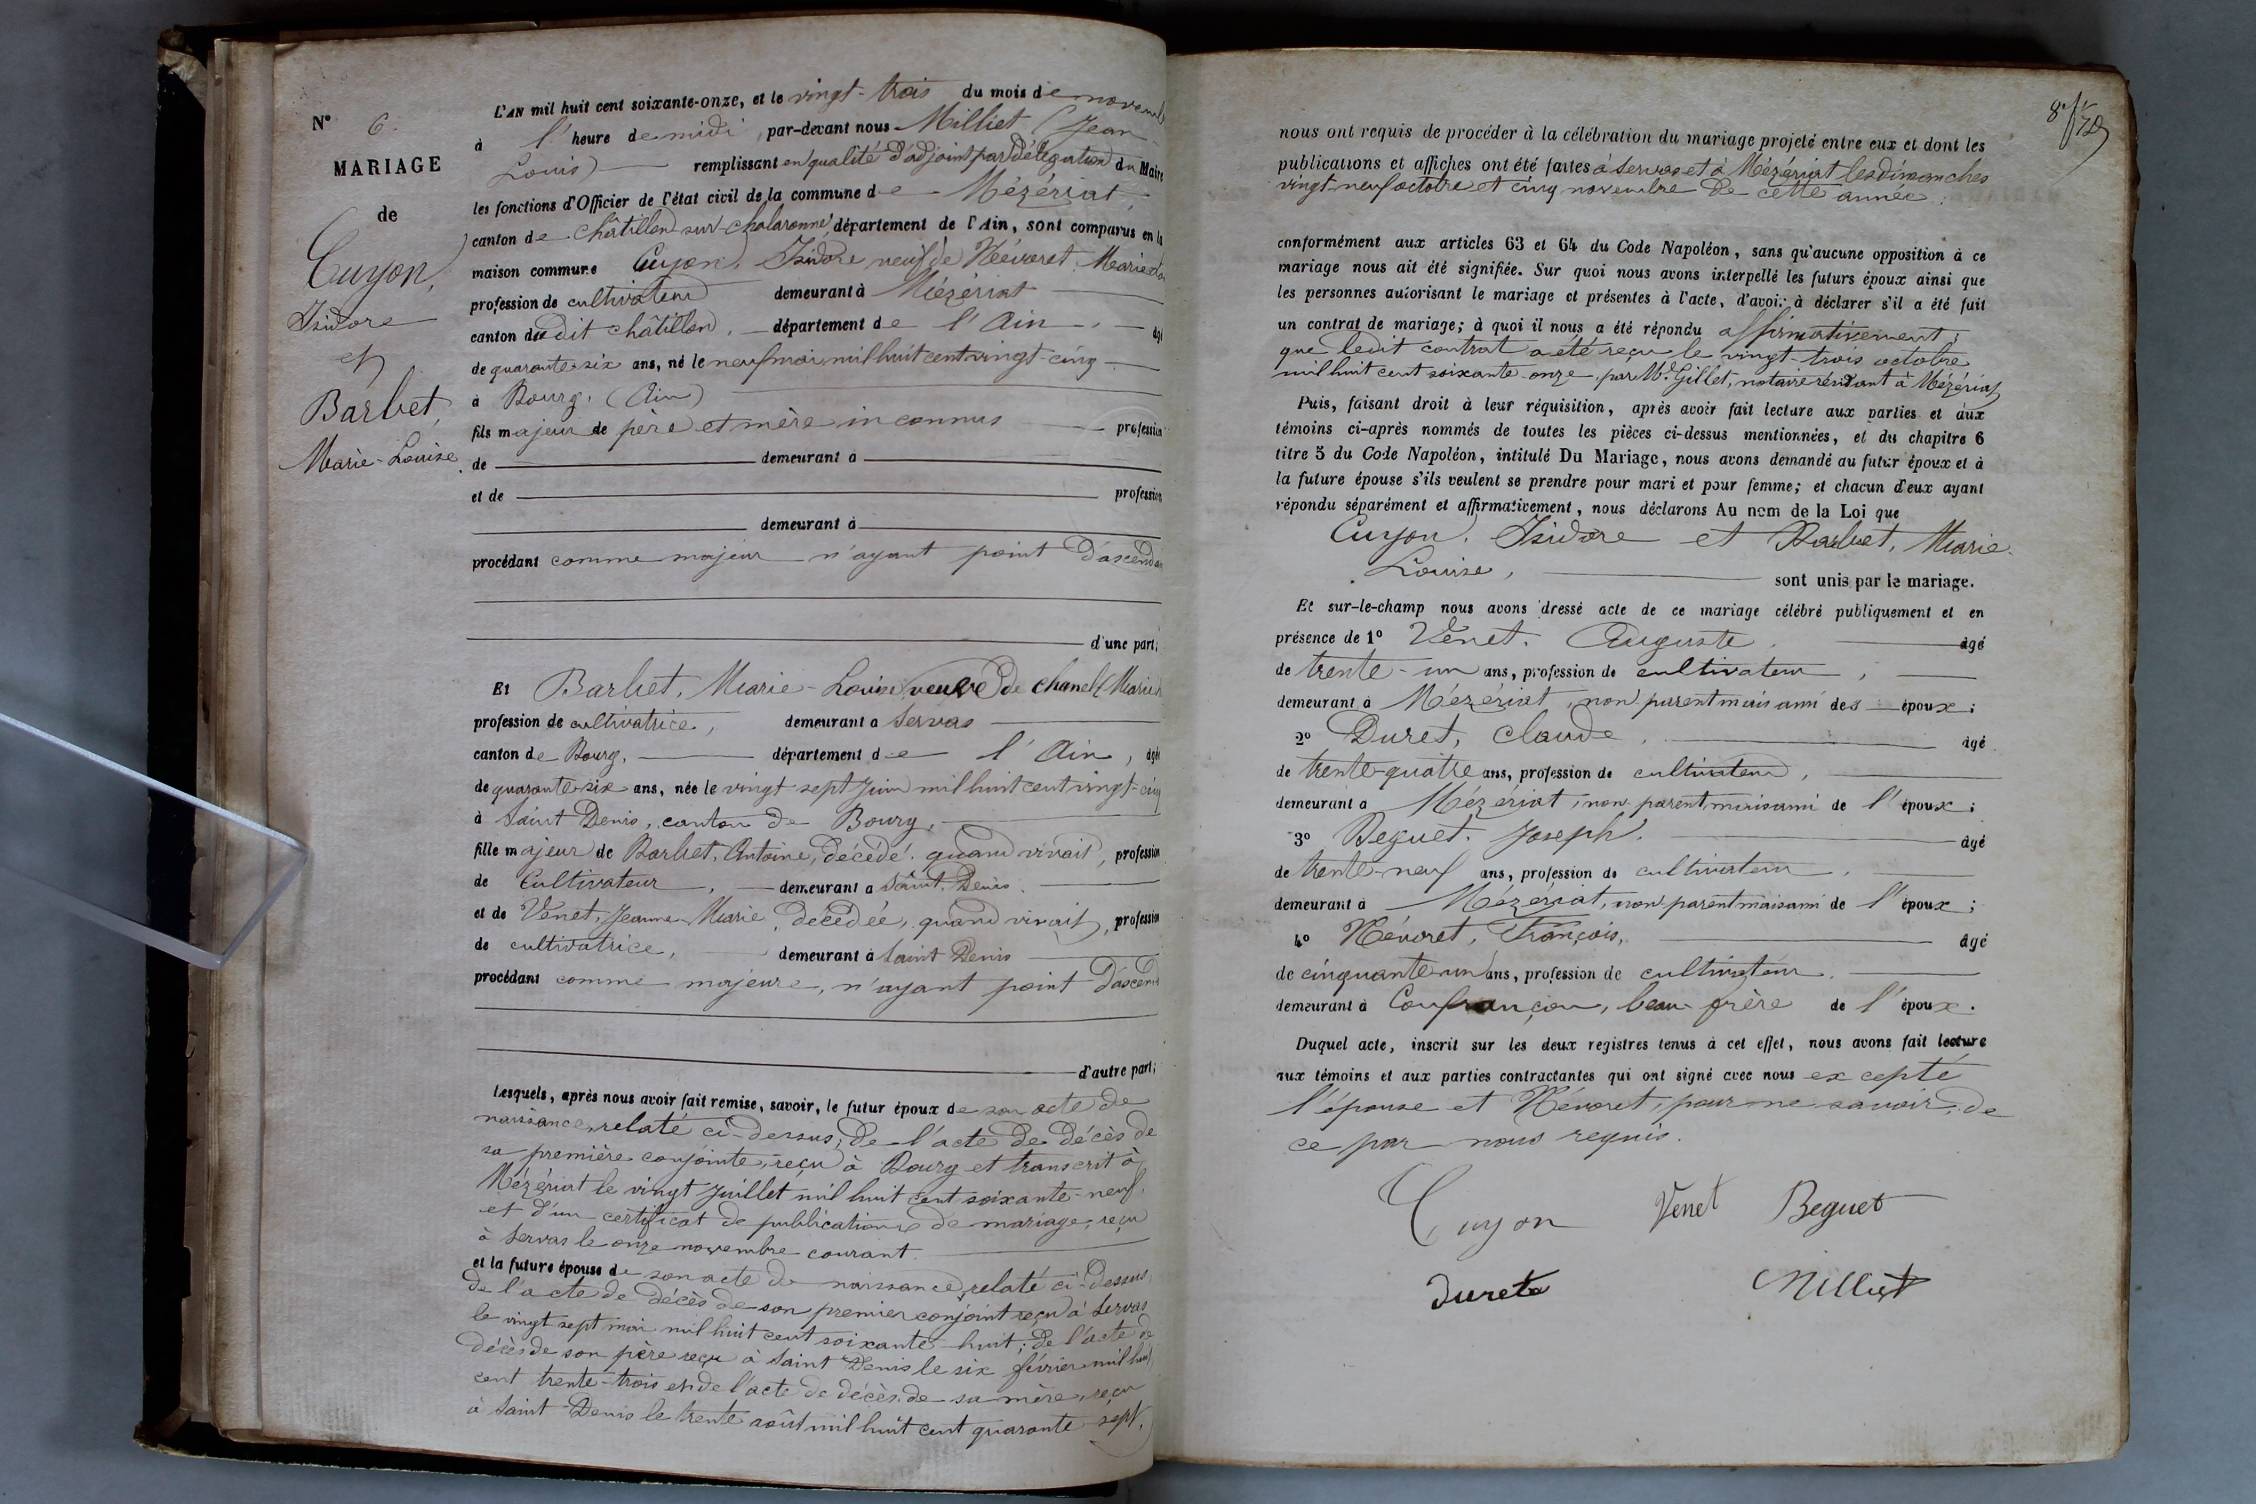 N° 6.
MARIAGE
de
Cuyon,
Isidore
et
Barbet,
Marie-Louise
L'AN mil huit cent soixante-onze, et le vingt-trois du mois de novemb
à l'heure de midi, par-devant nous Milliet (Jean
Louis) remplissant en qualité d'adjoint par délégation du Maire
les fonctions d'Officier de l'état civil de la commune de Mézériat,
canton de Châtillon sur Chalaronne, département de l'Ain, sont comparus en la
maison commune Cuyon, Isidore veuf de Névoret, Marie
profession de cultivateur demeurant à Mézériat
canton du dit châtillon, département de l'Ain, âgé
de quarante six ans, né le neuf mai mil huit cent vingt-cinq
à Bourg, (Ain)
fils majeur de père et mère inconnus profession
de demeurant à
et de profession
demeurant à
procédant comme majeur n'ayant point d'ascendan
d'une part;
Et Barbet, Marie-Louise veuve de Chanel (Marie
profession de cultivatrice, demeurant à Servas
canton de Bourg, département de l'Ain, âgée
de quarante six ans, née le vingt sept Juin mil huit cent vingt-cinq
à Saint Denis, canton de Bourg,
fille majeur de Barbet, Antoine, décédé, quand vivait, profession
de Cultivateur, demeurant à Saint-Denis.
et de Venet, Jeanne-Marie, décédée, quand vivait, profession
de cultivatrice, demeurant à Saint Denis
procédant comme majeure, n'ayant point d'ascend
d'autre part;
Lesquels, après nous avoir fait remise, savoir, le futur époux de son acte de
naissance, relaté ci-dessus; de l'acte de décès de
sa première conjointe, reçu à Bourg et transcrit à
Mézériat le vingt Juillet mil huit cent soixante-neuf,
et d'un certificat de publications de mariage, reçu
à Servas le onze novembre courant.
et la future épouse de son acte de naissance, relaté ci-dessus,
de l'acte de décès de son premier conjoint reçu à Servas
le vingt sept mai mil huit cent soixante-huit; de l'acte de
décès de son père reçu à Saint Denis le six février mil huit
cent trente-trois et de l'acte de décès de sa mère, reçu
à Saint-Denis le trente août mil huit cent quarante-sept,
nous ont requis de procéder à la célébration du mariage projeté entre eux et dont les
publications et affiches ont été faites à Servas et à Mézériat les dimanches
vingt-neuf octobre et cinq novembre de cette année.
conformément aux articles 63 et 64 du Code Napoléon, sans qu'aucune opposition à ce
mariage nous ait été signifiée. Sur quoi nous avons interpellé les futurs époux ainsi que
les personnes autorisant le mariage et présentes à l'acte, d'avoir à déclarer s'il a été fait
un contrat de mariage; à quoi il nous a été répondu affirmativement;
que ledit contrat a été reçu le vingt-trois octobre
mil huit cent soixante-onze, par Me Gillet, notaire résidant à Mézériat
Puis, faisant droit à leur réquisition, après avoir fait lecture aux parties et aux
témoins ci-après nommés de toutes les pièces ci-dessus mentionnées, et du chapitre 6
titre 5 du Code Napoléon, intitulé Du Mariage, nous avons demandé au futur époux et à
la future épouse s'ils veulent se prendre pour mari et pour femme; et chacun d'eux ayant
répondu séparément et affirmativement, nous déclarons Au nom de la Loi que
Cuyon, Isidore et Barbet, Marie
Louise, sont unis par le mariage.
Et sur-le-champ nous avons dressé acte de ce mariage célébré publiquement et en
présence de 1° Venet, Auguste, âgé
de trente-un ans, profession de cultivateur,
demeurant à Mézériat, non parent mais ami des époux;
2° Duret, Claude, âgé
de trente-quatre ans, profession de cultivateur,
demeurant à Mézériat, non parent mais ami de l'époux;
3° Beguet, Joseph, âgé
de trente-neuf ans, profession de cultivateur,
demeurant à Mézériat, non parent mais ami de l'époux;
4° Névoret, François, âgé
de cinquante-un ans, profession de cultivateur,
demeurant à Confrançon, beau-frère de l'époux.
Duquel acte, inscrit sur les deux registres tenus à cet effet, nous avons fait lecture
aux témoins et aux parties contractantes qui ont signé avec nous excepté
l'épouse et Névoret, pour ne savoir, de
ce par nous requis.
Cuyon Venet Beguet
Duret Milliet